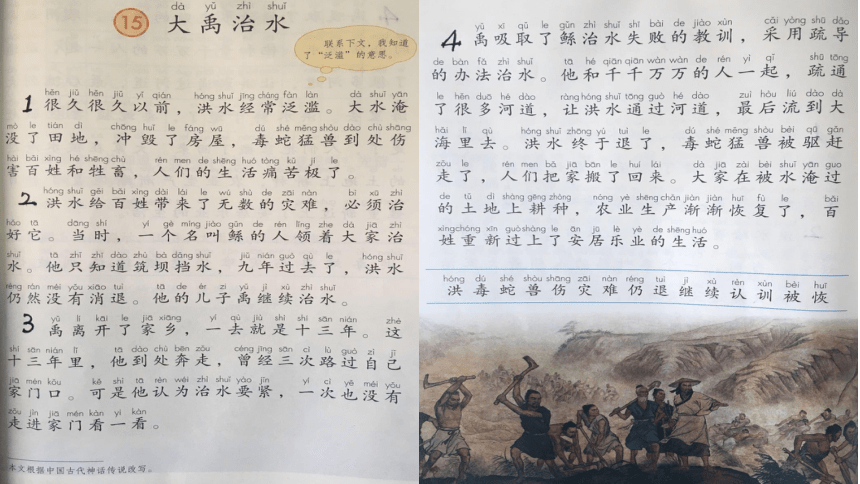 dà yǔ zhì shuǐ
15 大禹治水
联系下文，我知道
了“泛滥”的意思。
hěn jiǔ hěn jiǔ yǐ qián hóng shuǐ jīng cháng fàn làn dà shuǐ yān
1 很久很久以前，洪水经常泛滥。大水淹
mò le tián dì chōng huǐ le fáng wū dú shé měng shòu dào chù shāng
没了田地，冲毁了房屋，毒蛇猛兽到处伤
hài bǎi xìng hé shēng chù rén men de shēng huó tòng kǔ jí le
害百姓和牲畜，人们的生活痛苦极了。
hóng shuǐ gěi bǎi xìng dài lái le wú shù de zāi nàn bì xū zhì
2 洪水给百姓带来了无数的灾难，必须治
hǎo tā dāng shí yí gè míng jiào gǔn de rén lǐng zhe dà jiā zhì
好它。当时，一个名叫鲧的人领着大家治
shuǐ tā zhǐ zhī dào zhù bà dǎng shuǐ jiǔ nián guò qù le hóng shuǐ
水。他只知道筑坝挡水，九年过去了，洪水
réng rán méi yǒu xiāo tuì tā de ér zi yǔ jì xù zhì shuǐ
仍然没有消退。他的儿子禹继续治水。
yǔ lí kāi le jiā xiāng yí qù jiù shì shí sān nián zhè
3 禹离开了家乡，一去就是十三年。这
shí sān nián lǐ tā dào chù bēn zǒu céng jīng sān cì lù guò zì jǐ
十三年里，他到处奔走，曾经三次路过自己
jiā mén kǒu kě shì tā rèn wéi zhì shuǐ yào jǐn yí cì yě méi yǒu
家门口。可是他认为治水要紧，一次也没有
zǒu jìn jiā mén kàn yí kàn
走进家门看一看。
本文根据中国古代神话传说改写。
yǔ xī qǔ le gǔn zhì shuǐ shī bài de jiào xùn cǎi yòng shū dǎo
4 禹吸取了鲧治水失败的教训，采用疏导
de bàn fǎ zhì shuǐ tā hé qiān qiān wàn wàn de rén yì qǐ shū tōng
的办法治水。他和千千万万的人一起，疏通
le hěn duō hé dào ràng hóng shuǐ tōng guò hé dào zuì hòu liú dào dà
了很多河道，让洪水通过河道，最后流到大
hǎi lǐ qù hóng shuǐ zhōng yú tuì le dú shé měng shòu bèi qū gǎn
海里去。洪水终于退了，毒蛇猛兽被驱赶
zǒu le rén men bǎ jiā bān le huí lái dà jiā zài bèi shuǐ yān guo
走了，人们把家搬了回来。大家在被水淹过
de tǔ dì shàng gēng zhòng nóng yè shēng chǎn jiàn jiàn huī fù le bǎi
的土地上耕种，农业生产渐渐恢复了，百
xìng chóng xīn guò shàng le ān jū lè yè de shēng huó
姓重新过上了安居乐业的生活。
hóng dú shé shòu shāng zāi nàn réng tuì jì xù rèn xùn bèi huī
洪毒蛇兽伤灾难仍退继续认训被恢